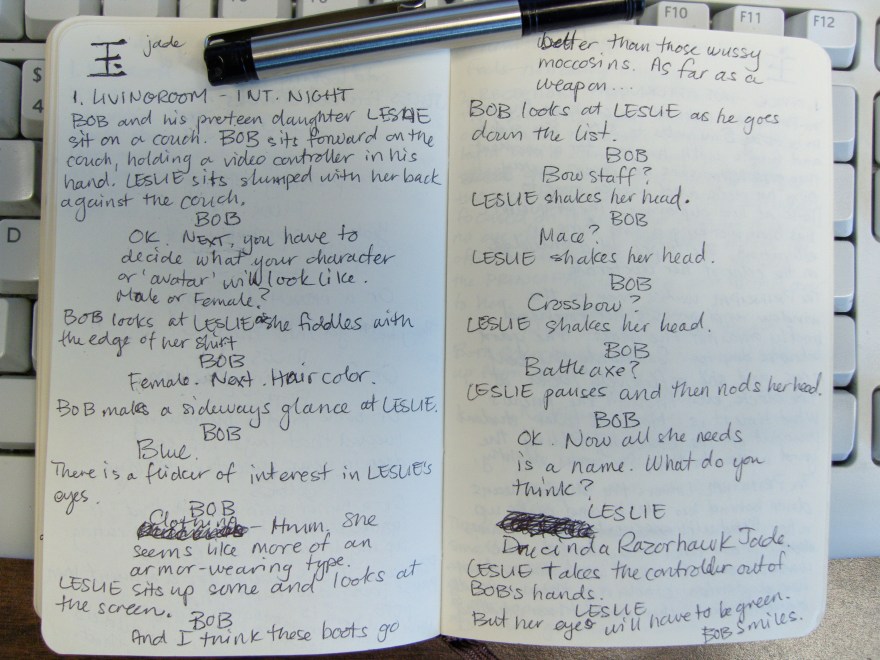 玉 jade
1. LIVINGROOM - INT. NIGHT
BOB and his preteen daughter LESLIE
sit on a couch. BOB sits forward on the
couch, holding a video controller in his
hand. LESLIE sits slumped with her back
against the couch.
BOB
OK. NEXT, you have to
decide what your character
or 'avatar' will look like.
Male or Female?
BOB looks at LESLIE as she fiddles with
the edge of her shirt
BOB
Female. Next. Hair color.
BOB makes a sideways glance at LESLIE.
BOB
Blue.
There is a flicker of interest in LESLIE'S
eyes.
BOB
Clothing
- Hmm. She
seems like more of an
armor-wearing type.
LESLIE sits up some and looks at
the screen.
BOB
And I think these boots go
better than those wussy
moccosins. As far as a
weapon...
BOB looks at LESLIE as he goes
down the list.
BOB
Bow staff?
LESLIE shakes her head.
BOB
Mace?
LESLIE shakes her head.
BOB
Crossbow?
LESLIE shakes her head.
BOB
Battle axe?
LESLIE pauses and then nods her head.
BOB
OK. Now all she needs
is a name. What do you
think?
LESLIE
Drucinda Razorhawk Jade.
LESLIE takes the controller out of
BOB's hands.
LESLIE
But her eyes will have to be green.
BOB smiles.
$
4
D
F10
F11
F12